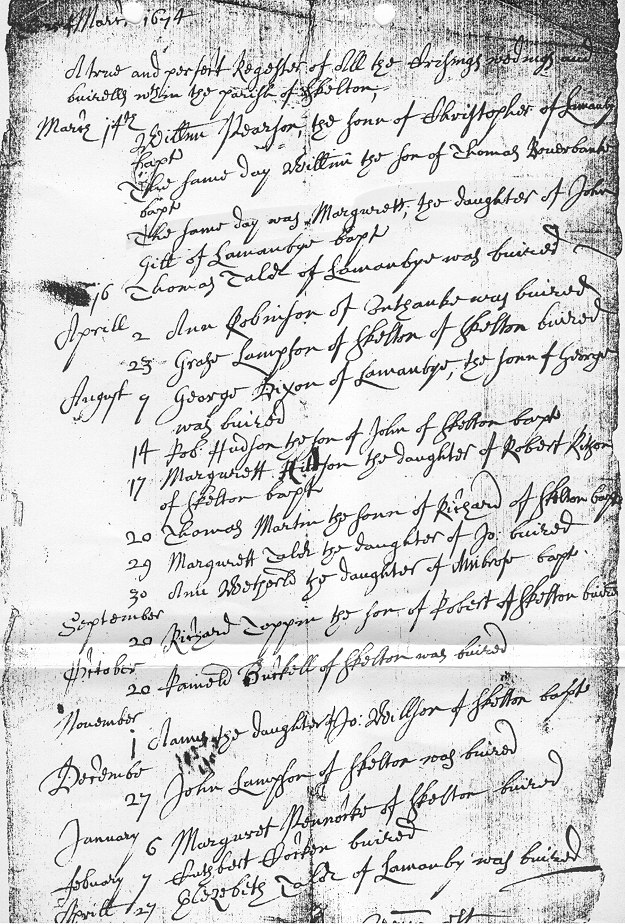 March 1674
A true and perfect Regester of All the Crisnings wedings and
buirells within the parish of Skelton,
March 14th
Willm Pearson, the sonn of Christopher of Lamanby
bapt
The same day Willm the son of Thomas Bouerbanke
bapt
The same day was Margurett, the daughter of John
Gill of Lamanbye bapt
16 Thomas of Lamanbye was buired
Aprill 2 Ann Robinson of was buired
23 Grase Lampson of Skelton of Skelton buired
August 9 George Dixon of Lamanbye, the sonn of George
was buired
14 Rob: Hudson the son of John of Skelton bapt
17 Margurett the daughter of Robert
of Skelton bapt
20 Thomas Martin the sonn of Richard of Skelton bapt
29 Margurett the daughter of Jo: buired
30 Ann the daughter of Ambrose bapt
September
20 Richard Toppin the son of Robert of Skelton buired
October
20 of Skelton was buired
November
1 the daughter of Jo: Willson of Skelton bapt
Decembe
27 John Lampson of Skelton was buired
January 6 Margaret of Skelton buired
febuary 7 Cuthbert buired
Aprill 27 Elezebeth of Lamanby was buired